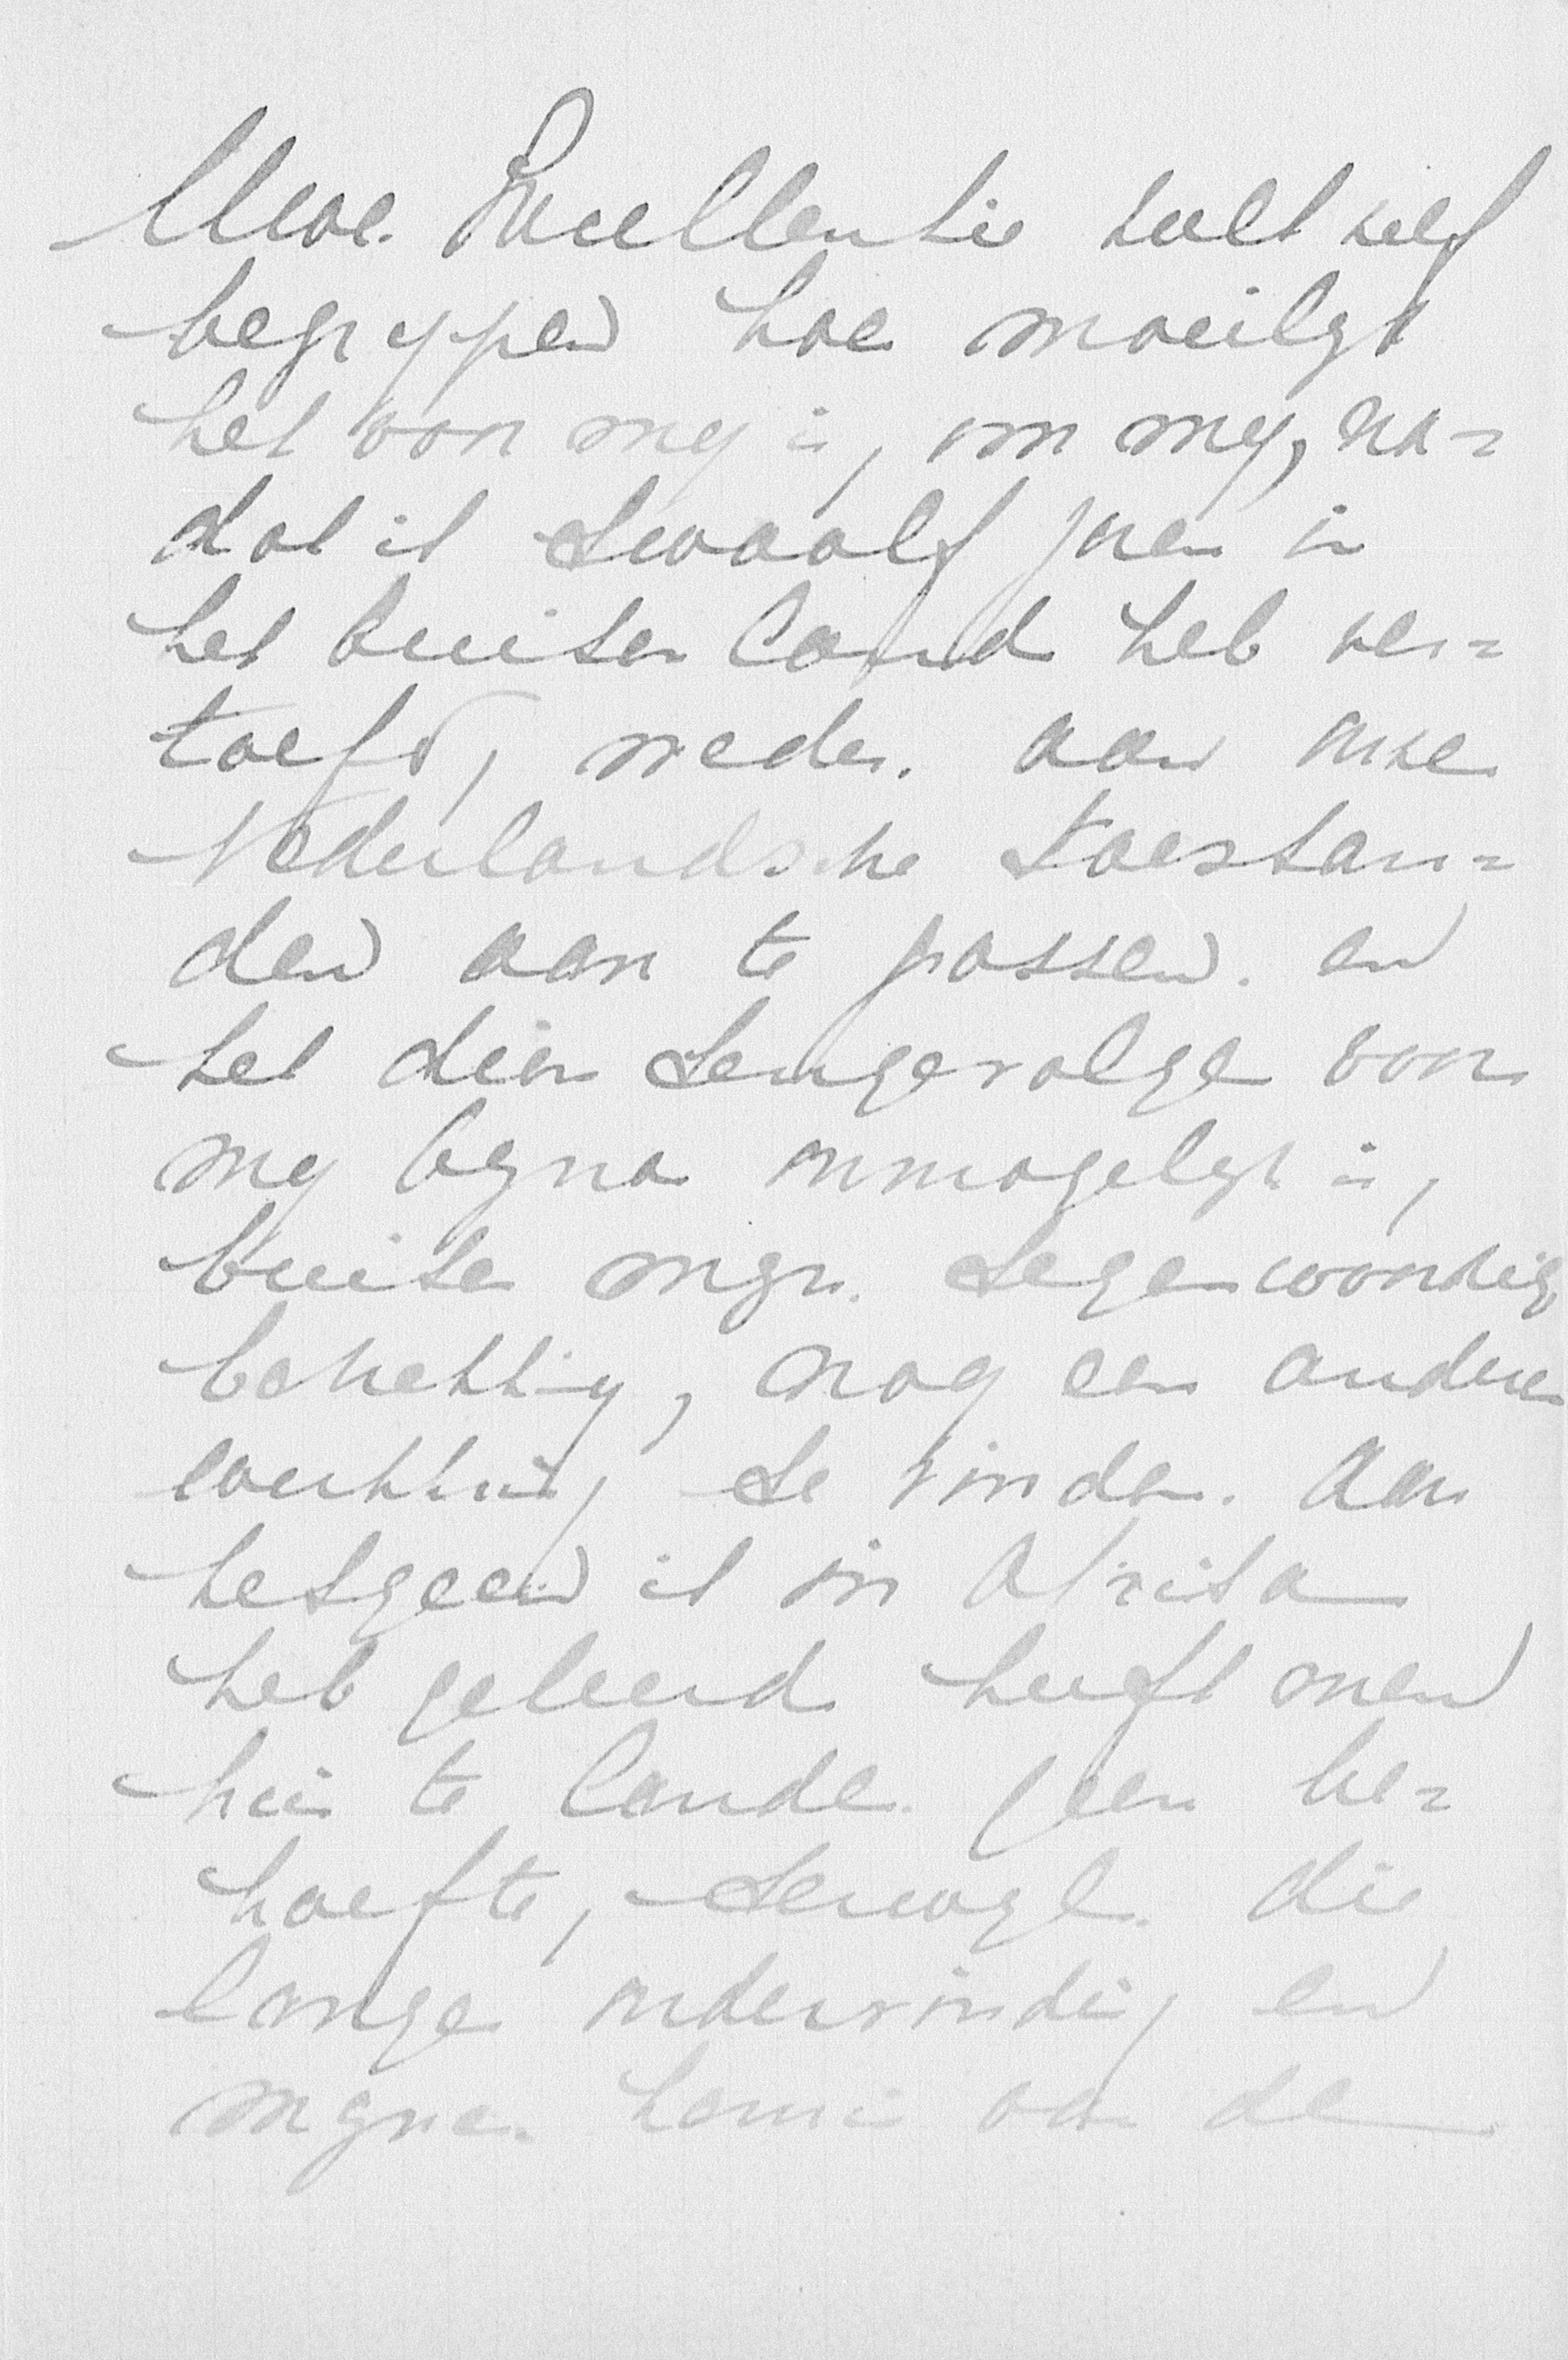 Uwe Excellentie zult zelf
begrypen hoe moeilyk
het voor my is, om my, na=
dat ik twaalf jaren in
het buitenland heb ver=
toefd, weder aan onze
Nederlandsche toestan=
den aan te passen en
het dien tengevolge voor
my byna onmogelyk is,
buiten myn tegenwoordig
betrekking, nog een andere
werkkring te vinden. Aan
hetgeen ik in Afrika
heb geleerd heeft men
hier te lande geen be=
hoefte, terwyl die
lange ondervinding en
myne kennis van de